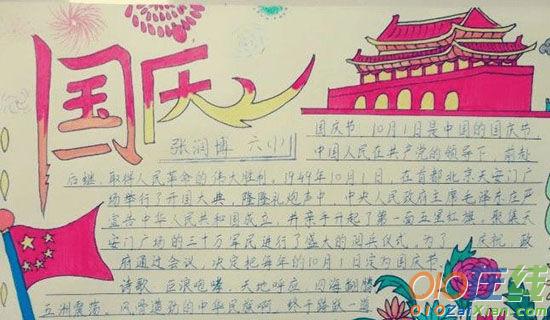 国庆
张润博 六(1)
国庆节，10月1日是中国的国庆节，
中国人民在共产党的领导下，前赴
后继，取得人民革命的伟大胜利，1949年10月1日，在首都北京天安门广
场举行了开国大典，隆隆礼炮声中，中央人民政府主席毛泽东庄严
宣告中华人民共和国成立，并亲手升起了第一面五星红旗，聚集天
安门广场的三十万军民进行了盛大的阅兵仪式，为了 庆祝，政
府通过会议，决定把每年的10月1日定为国庆节。
诗歌：巨浪咆哮，天地呼应，四海翻腾
五洲震荡，风雷激动的中华民族啊
在线
ZaiXian.com